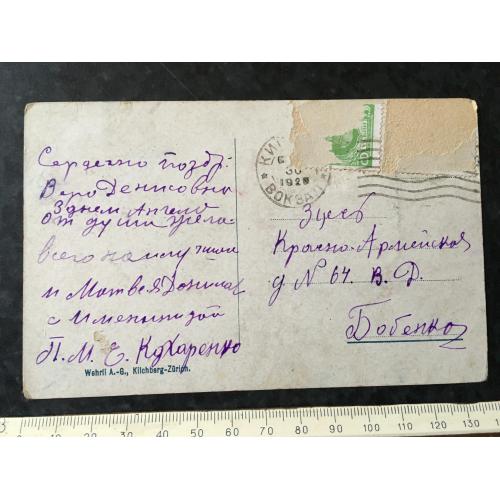 Сердечно поздр:
Вера Денисовна
З днем Ангела
от души жела-
всего наилучшаи
и Матвея Дениса
с Именинницей
П. М. Е. Кухаренко
Wehrli A.-G., Kilchberg-Zürich.
КИ
30
1928
ВОКЗАЛ
Здесь
Красно-Армейская
д № 64. В. Д.
Бобенко
30 40 50 60 70 80 90 100 110 120 130